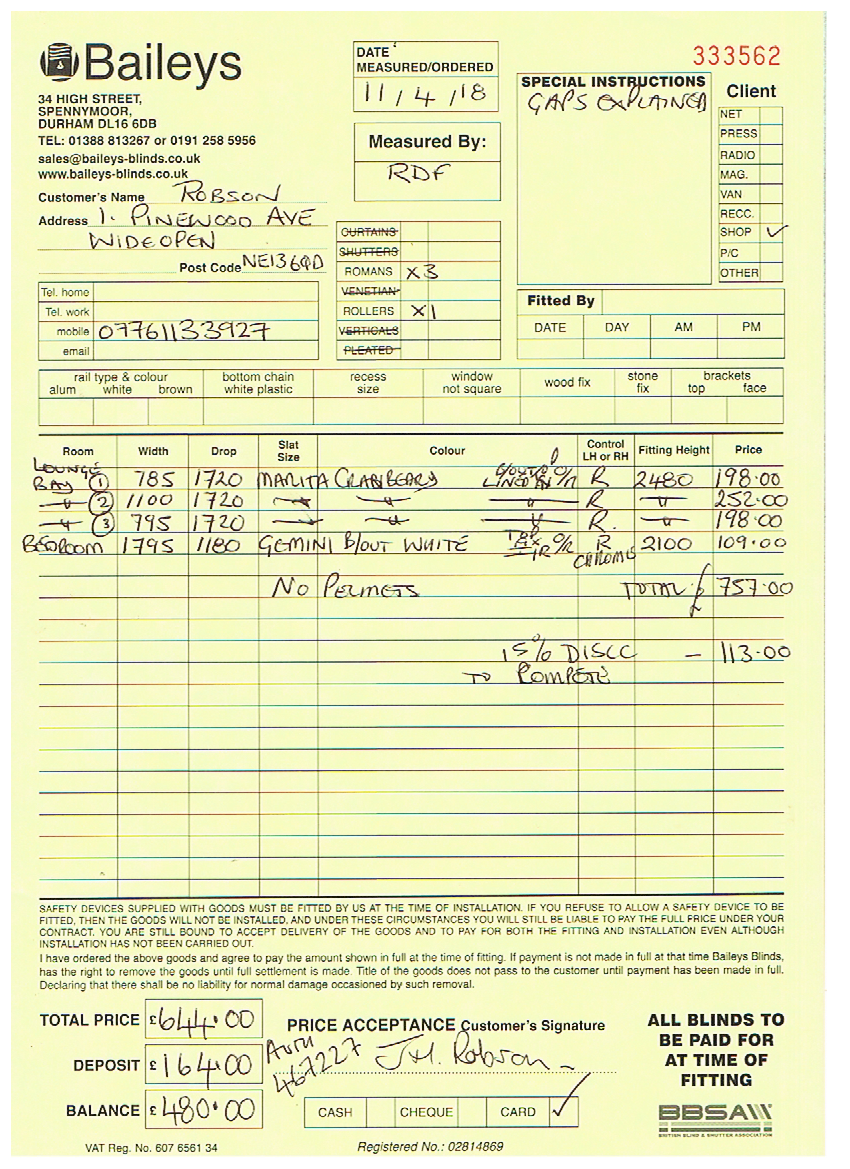 Baileys
34 HIGH STREET,
SPENNYMOOR,
DURHAM DL16 6DB
TEL: 01388 813267 or 0191 258 5956
sales@baileys-blinds.co.uk
www.baileys-blinds.co.uk
DATE
MEASURED/ORDERED
11/4/18
Measured By:
RDF
333562
SPECIAL INSTRUCTIONS
GAPS EXPLAINED
Client
NET
PRESS
RADIO
MAG.
VAN
RECC.
SHOP ✓
P/C
OTHER
Customer's Name ROBSON
Address 1. PINEWOOD AVE
WIDEOPEN
Post Code NE13 6QD
Tel. home
Tel. work
mobile 07761133927
email
CURTAINS
SHUTTERS
ROMANS X3
VENETIAN
ROLLERS X1
VERTICALS
PLEATED
Fitted By
DATE DAY AM PM
rail type & colour bottom chain recess window wood fix stone brackets
alum white brown white plastic size not square fix top face
Room Width Drop Slat Size Colour Control LH or RH Fitting Height Price
LOUNGE
BAY 1 785 1720 MARITA CRANBERRY B/OUT LINED R 2480 198.00
" 2 1100 1720 " " " R " 252.00
" 3 795 1720 " " " R. " 198.00
BEDROOM 1795 1180 GEMINI B/OUT WHITE O/R R 2100 109.00
CHROME
NO PELMETS TOTAL £ 757.00
15% DISCC - 113.00
TO COMPETE
SAFETY DEVICES SUPPLIED WITH GOODS MUST BE FITTED BY US AT THE TIME OF INSTALLATION. IF YOU REFUSE TO ALLOW A SAFETY DEVICE TO BE
FITTED, THEN THE GOODS WILL NOT BE INSTALLED, AND UNDER THESE CIRCUMSTANCES YOU WILL STILL BE LIABLE TO PAY THE FULL PRICE UNDER YOUR
CONTRACT. YOU ARE STILL BOUND TO ACCEPT DELIVERY OF THE GOODS AND TO PAY FOR BOTH THE FITTING AND INSTALLATION EVEN ALTHOUGH
INSTALLATION HAS NOT BEEN CARRIED OUT.
I have ordered the above goods and agree to pay the amount shown in full at the time of fitting. If payment is not made in full at that time Baileys Blinds,
has the right to remove the goods until full settlement is made. Title of the goods does not pass to the customer until payment has been made in full.
Declaring that there shall be no liability for normal damage occasioned by such removal.
TOTAL PRICE £644.00
DEPOSIT £164.00
BALANCE £480.00
PRICE ACCEPTANCE Customer's Signature
AUTH
467227
J.H. Robson
CASH CHEQUE CARD ✓
ALL BLINDS TO
BE PAID FOR
AT TIME OF
FITTING
BBSA
BRITISH BLIND & SHUTTER ASSOCIATION
VAT Reg. No. 607 6561 34
Registered No.: 02814869